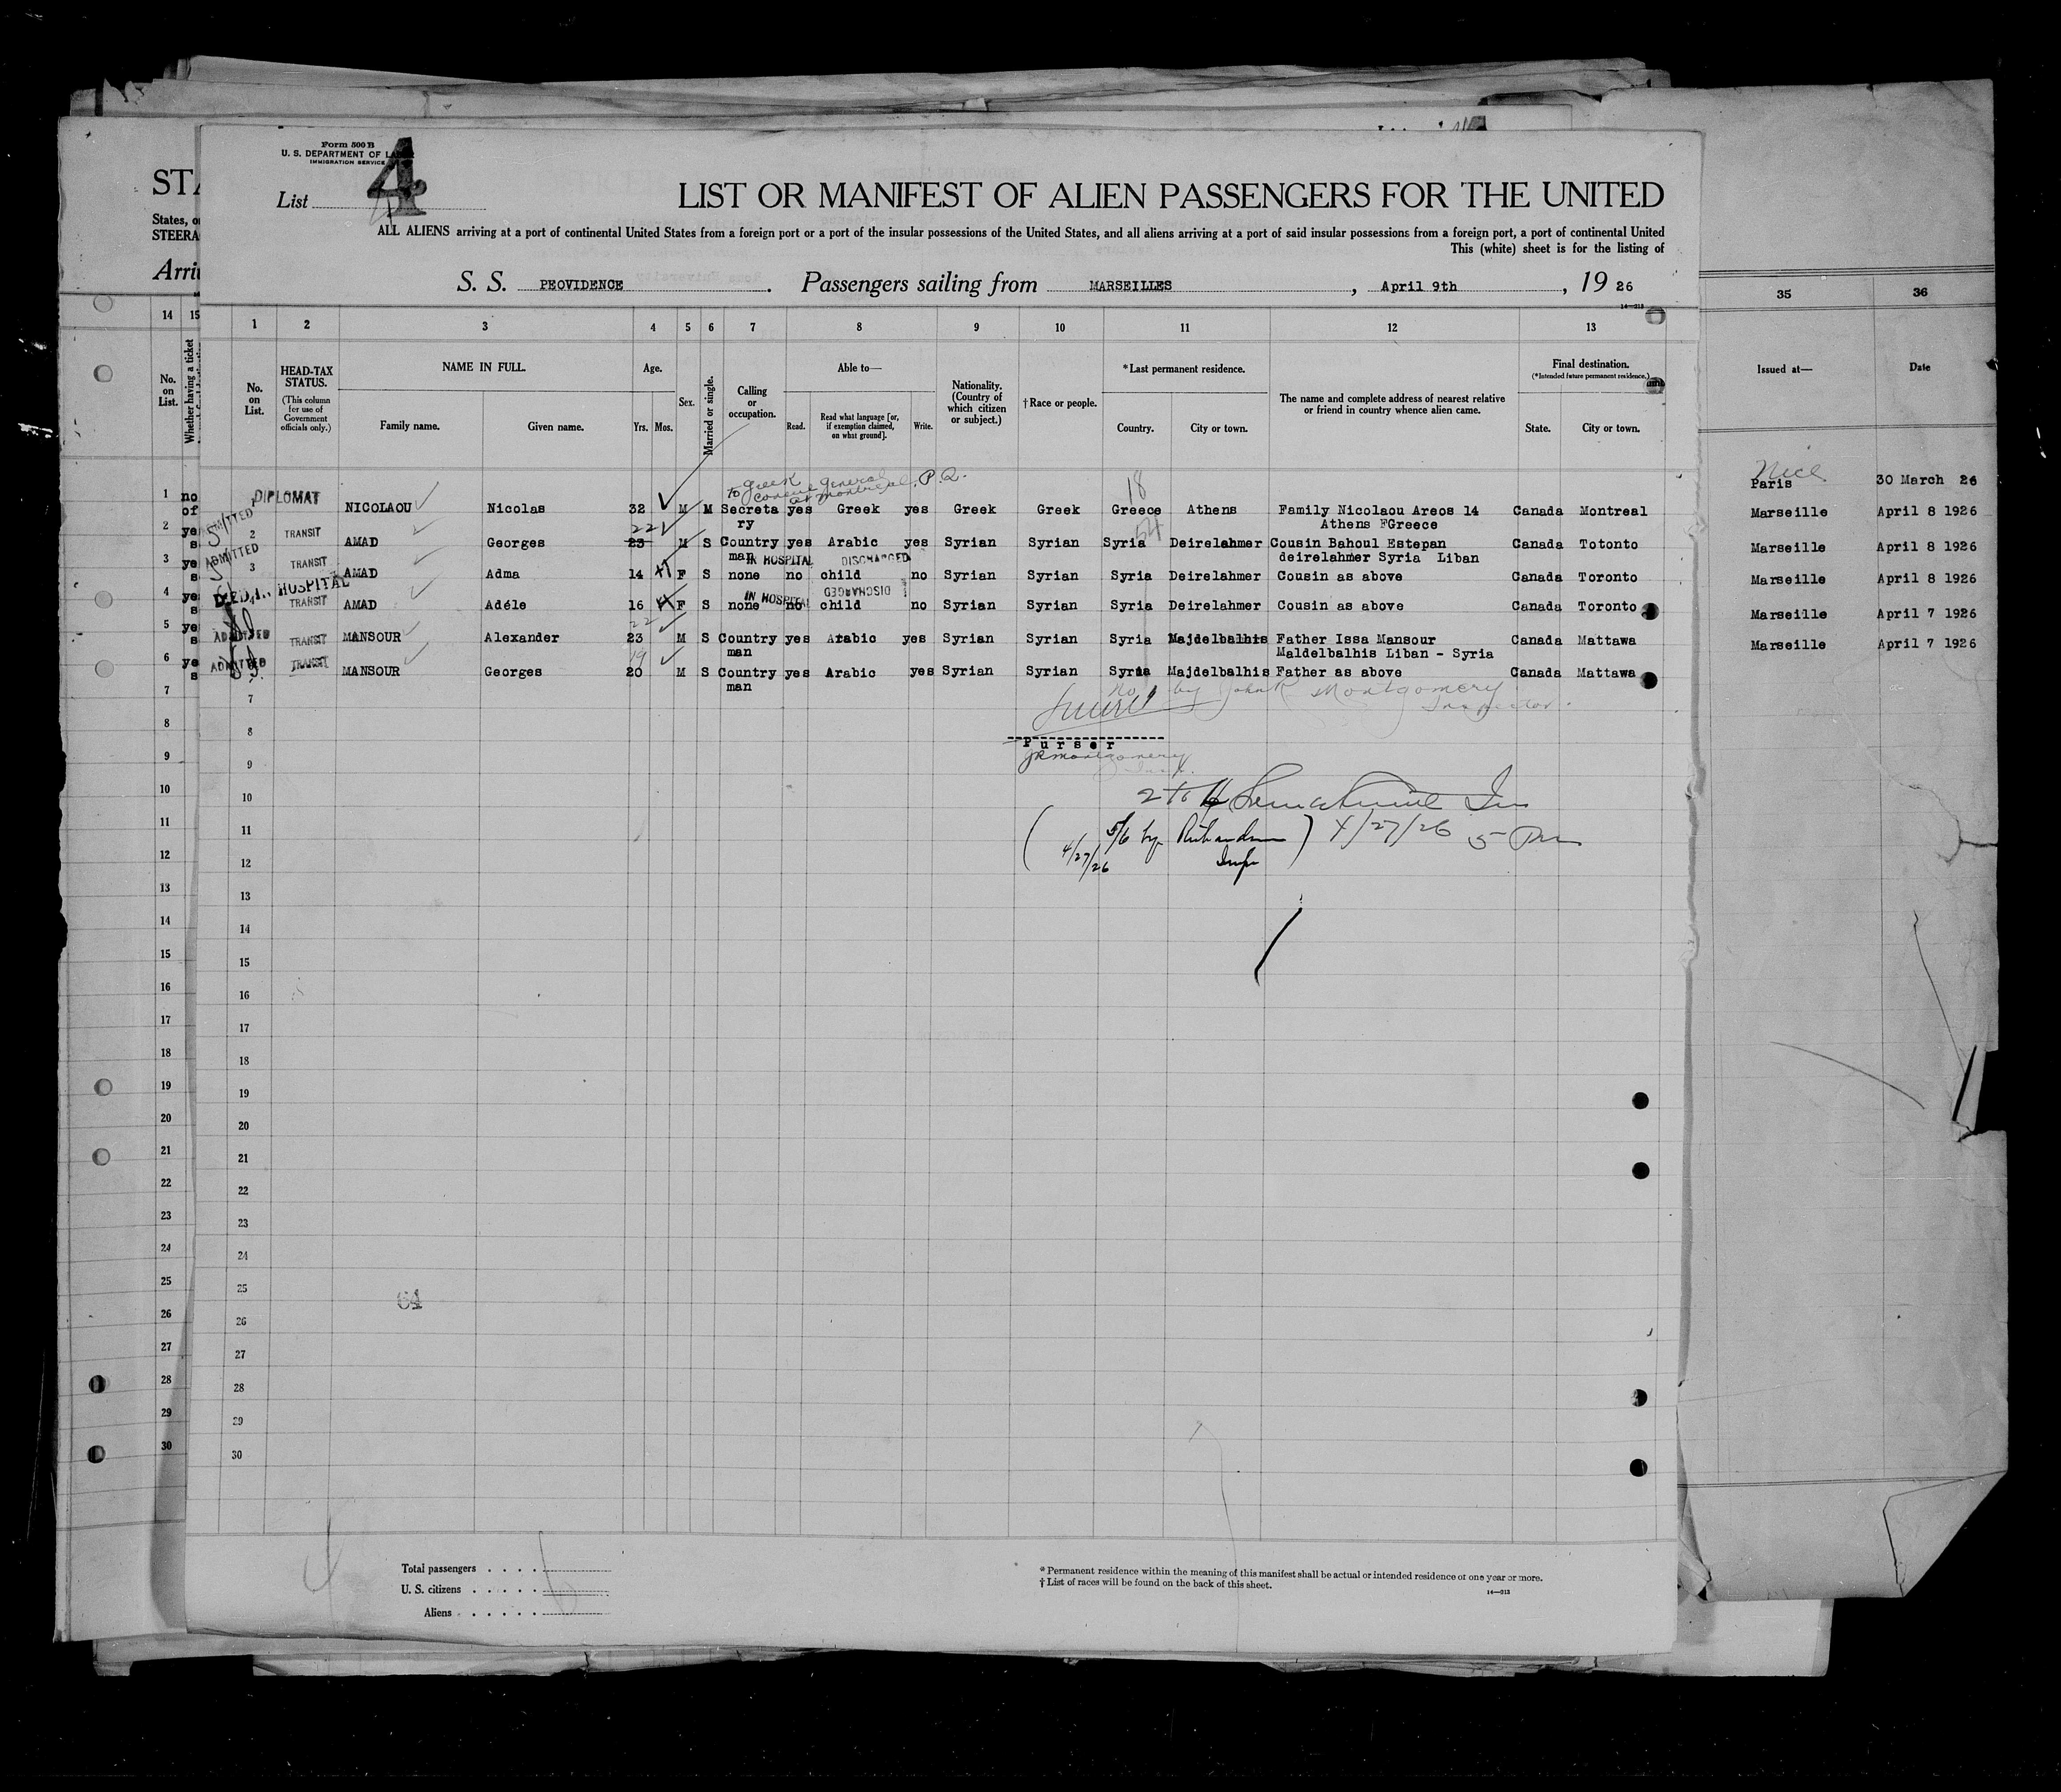 Form 500 B
U. S. DEPARTMENT OF LABOR
IMMIGRATION SERVICE
4
List
LIST OR MANIFEST OF ALIEN PASSENGERS FOR THE UNITED
ALL ALIENS arriving at a port of continental United States from a foreign port or a port of the insular possessions of the United States, and all aliens arriving at a port of said insular possessions from a foreign port, a port of continental United
This (white) sheet is for the listing of
STA
States, or
STEERA
Arri
S. S. PEOVIDENCE. Passengers sailing from MARSEILLES, April 9th, 19 26
14—913
14 15 1 2 3 4 5 6 7 8 9 10 11 12 13 35 36
No. on List.
Whether having a ticket
No. on List.
HEAD-TAX STATUS.
(This column for use of Government officials only.)
NAME IN FULL.
Family name. Given name.
Age.
Yrs. Mos.
Sex.
Married or single.
Calling or occupation.
Able to—
Read. Read what language [or, if exemption claimed, on what ground]. Write.
Nationality. (Country of which citizen or subject.)
†Race or people.
*Last permanent residence.
Country. City or town.
The name and complete address of nearest relative or friend in country whence alien came.
Final destination.
(*Intended future permanent residence.)
State. City or town.
Issued at— Date
to Greek Consul General at Montreal, P.Q.
18
Nice
Paris 30 March 26
1 no DIPLOMAT
of 1 NICOLAOU Nicolas 32 M M Secreta yes Greek yes Greek Greek Greece Athens Family Nicolaou Areos 14 Canada Montreal Marseille April 8 1926
ry Athens FGreece
22 54
2 ye ADMITTED 2 TRANSIT AMAD Georges 23 M S Country yes Arabic yes Syrian Syrian Syria Deirelahmer Cousin Bahoul Estepan Canada Totonto Marseille April 8 1926
s man deirelahmer Syria Liban
IN HOSPITAL DISCHARGED
3 ye ADMITTED 3 TRANSIT AMAD Adma 14 F S none no child no Syrian Syrian Syria Deirelahmer Cousin as above Canada Toronto Marseille April 8 1926
s
DIED IN HOSPITAL
IN HOSPITAL DISCHARGED
4 ye TRANSIT AMAD Adéle 16 F S none no child no Syrian Syrian Syria Deirelahmer Cousin as above Canada Toronto Marseille April 7 1926
s
22
5 ye ADMITTED TRANSIT MANSOUR Alexander 23 M S Country yes Arabic yes Syrian Syrian Syria Majdelbalhis Father Issa Mansour Canada Mattawa Marseille April 7 1926
s man Maldelbalhis Liban - Syria
19
6 ye ADMITTED TRANSIT MANSOUR Georges 20 M S Country yes Arabic yes Syrian Syrian Syria Majdelbalhis Father as above Canada Mattawa
s man
No 1 by John R Montgomery
Inspector.
Purser
JR Montgomery
Insp.
2 to 4
5/6 by Richardson 4/27/26 5 Pm
4/27/26 Insp
7 7
8 8
9 9
10 10
11 11
12 12
13 13
14 14
15 15
16 16
17 17
18 18
19 19
20 20
21 21
22 22
23 23
24 24
25 25
26 26
27 27
28 28
29 29
30 30
64
Total passengers
U. S. citizens
Aliens
* Permanent residence within the meaning of this manifest shall be actual or intended residence of one year or more.
† List of races will be found on the back of this sheet.
14—913